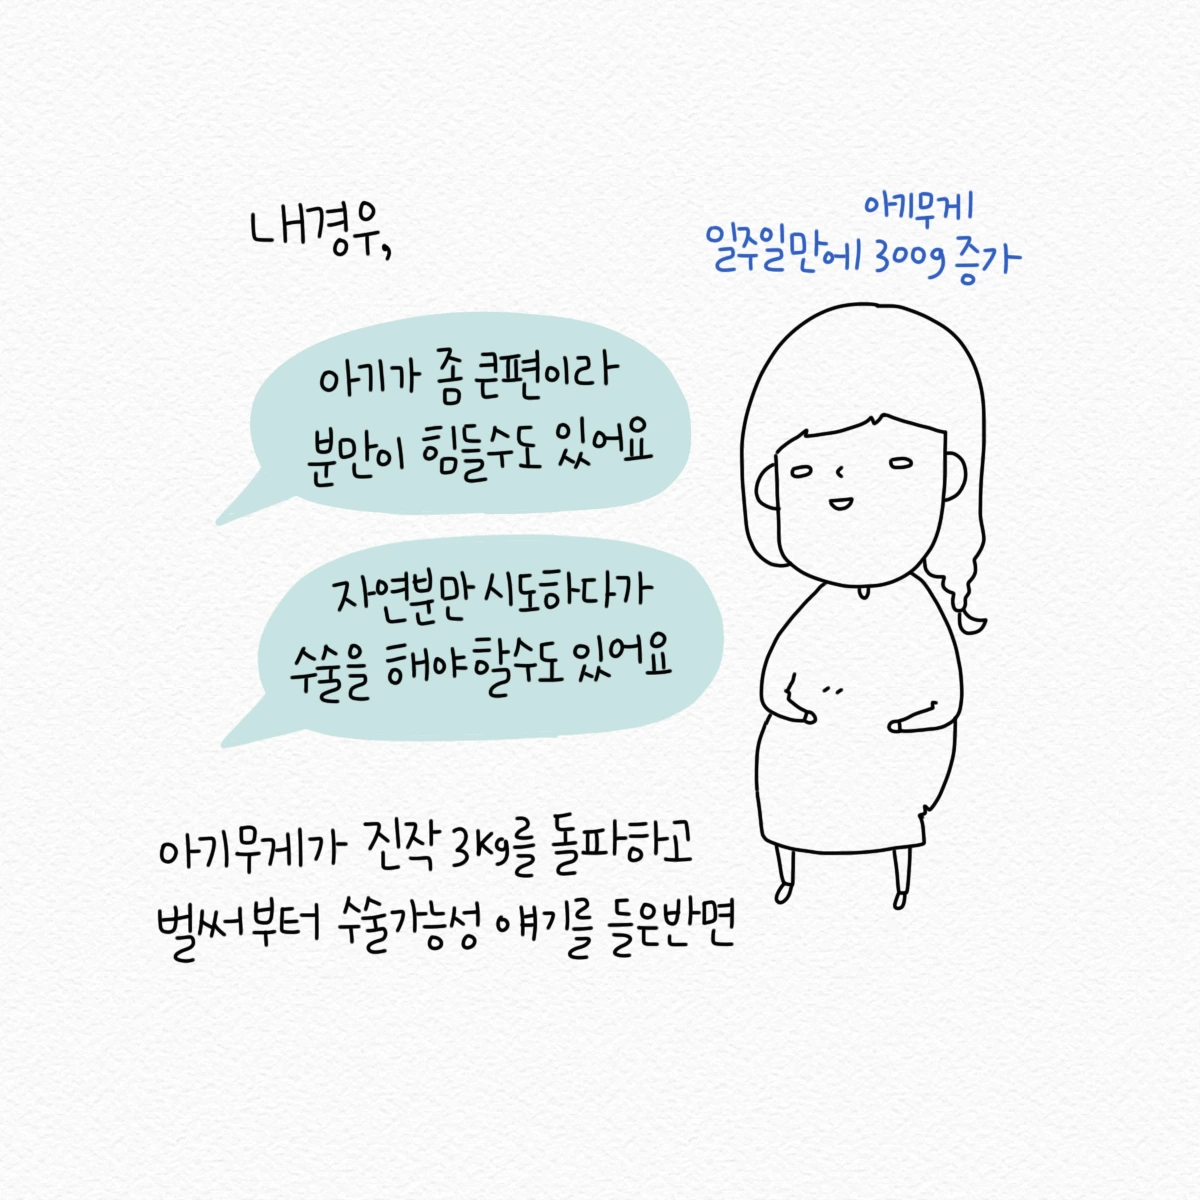 내경우,
아기무게
일주일만에 300g 증가
아기가 좀 큰편이라
분만이 힘들수도 있어요
자연분만 시도하다가
수술을 해야할수도 있어요
아기무게가 진작 3kg를 돌파하고
벌써부터 수술가능성 얘기를 들은반면